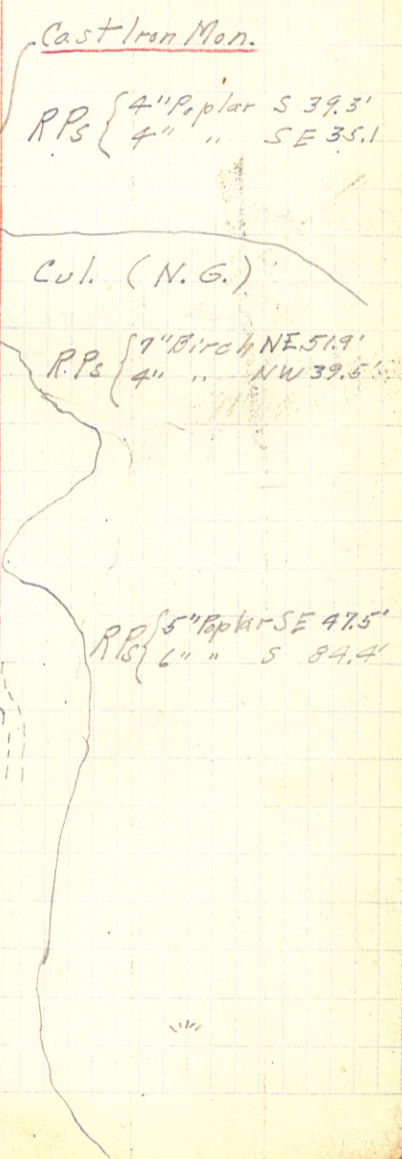 Cast Iron Mon.
RPs { 4" Poplar S 39.3'
4" " SE 35.1
Cul. (N.G.)
R.Ps { 7" Birch NE 51.9'
4" " NW 39.5'
RPs { 5" Poplar SE 47.5'
6" " S 84.4'